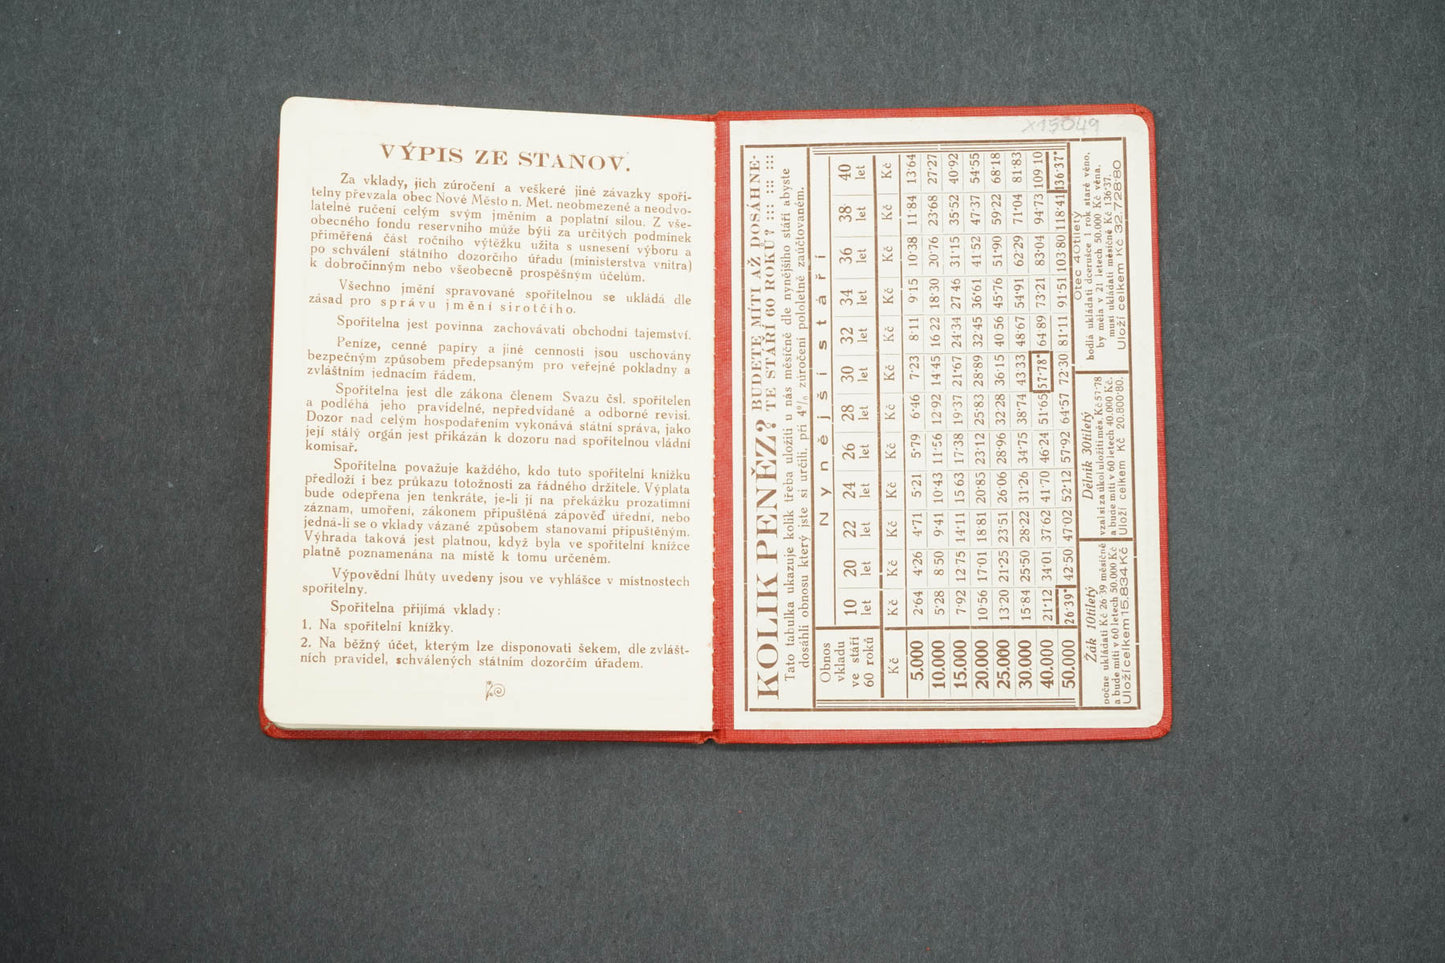 VÝPIS ZE STANOV.
Za vklady, jich zúročení a veškeré jiné závazky spoři-
telny převzala obec Nové Město n. Met. neobmezené a neodvo-
latelné ručení celým svým jměním a poplatní silou. Z vše-
obecného fondu reservního může býti za určitých podmínek
přiměřená část ročního výtěžku užita s usnesení výboru a
po schválení státního dozorčího úřadu (ministerstva vnitra)
k dobročinným nebo všeobecně prospěšným účelům.
Všechno jmění spravované spořitelnou se ukládá dle
zásad pro správu jmění sirotčího.
Spořitelna jest povinna zachovávati obchodní tajemství.
Peníze, cenné papíry a jiné cennosti jsou uschovány
bezpečným způsobem předepsaným pro veřejné pokladny a
zvláštním jednacím řádem.
Spořitelna jest dle zákona členem Svazu čsl. spořitelen
a podléhá jeho pravidelné, nepředvídané a odborné revisi.
Dozor nad celým hospodařením vykonává státní správa, jako
její stálý orgán jest přikázán k dozoru nad spořitelnou vládní
komisař.
Spořitelna považuje každého, kdo tuto spořitelní knížku
předloží i bez průkazu totožnosti za řádného držitele. Výplata
bude odepřena jen tenkráte, je-li jí na překážku prozatímní
záznam, umoření, zákonem připuštěná zápověď úřední, nebo
jedná-li se o vklady vázané způsobem stanovami připuštěným.
Výhrada taková jest platnou, když byla ve spořitelní knížce
platně poznamenána na místě k tomu určeném.
Výpovědní lhůty uvedeny jsou ve vyhlášce v místnostech
spořitelny.
Spořitelna přijímá vklady:
1. Na spořitelní knížky.
2. Na běžný účet, kterým lze disponovati šekem, dle zvlášt-
ních pravidel, schválených státním dozorčím úřadem.
X15049
KOLIK PENĚZ? BUDETE MÍTI AŽ DOSÁHNE-
TE STÁŘÍ 60 ROKŮ? ::: ::: ::: :::
Tato tabulka ukazuje kolik třeba uložiti u nás měsíčně dle nynějšího stáří abyste
dosáhli obnosu který jste si určili, při 4% zúročení pololetně zaúčtovaném.
Obnos vkladu ve stáří 60 roků
Nynější stáří
10 let 20 let 22 let 24 let 26 let 28 let 30 let 32 let 34 let 36 let 38 let 40 let
Kč Kč Kč Kč Kč Kč Kč Kč Kč Kč Kč Kč Kč
5.000 2·64 4·26 4·71 5·21 5·79 6·46 7·23 8·11 9·15 10·38 11·84 13·64
10.000 5·28 8 50 9·41 10·43 11·56 12·92 14·45 16 22 18·30 20·76 23·68 27·27
15.000 7·92 12·75 14·11 15 63 17·38 19·37 21·67 24·34 27 46 31·15 35·52 40·92
20.000 10·56 17·01 18·81 20·85 23·12 25·83 28·89 32·45 36·61 41·52 47·37 54·55
25.000 13·20 21·25 23·51 26·06 28·96 32·28 36·15 40 56 45·76 51·90 59·22 68·18
30.000 15·84 25·50 28·22 31·26 34·75 38·74 43·33 48·67 54·91 62·29 71·04 81·83
40.000 21·12 34·01 37 62 41·70 46·24 51·65 57·78* 64 89 73·21 83·04 94·73 109·10
50.000 26·39* 42·50 47·02 52·12 57·92 64·57 72·30 81·11 91·51 103·80 118·41 136·37*
Žák 10tiletý
počne ukládati Kč 26 39 měsíčně
a bude míti v 60 letech 50.000 Kč
Uloží celkem 15.834 Kč
Dělník 30tiletý
vzal si za úkol uložiti měs. Kč 57·78
a bude míti v 60 letech 40.000 Kč.
Uloží celkem Kč 20.800·80.
Otec 40tiletý
hodlá ukládati dcerušce 1 rok staré věno,
by měla v 21 letech 50.000 Kč věna,
musí ukládati měsíčně Kč 136·37.
Uloží celkem Kč 32.728·80